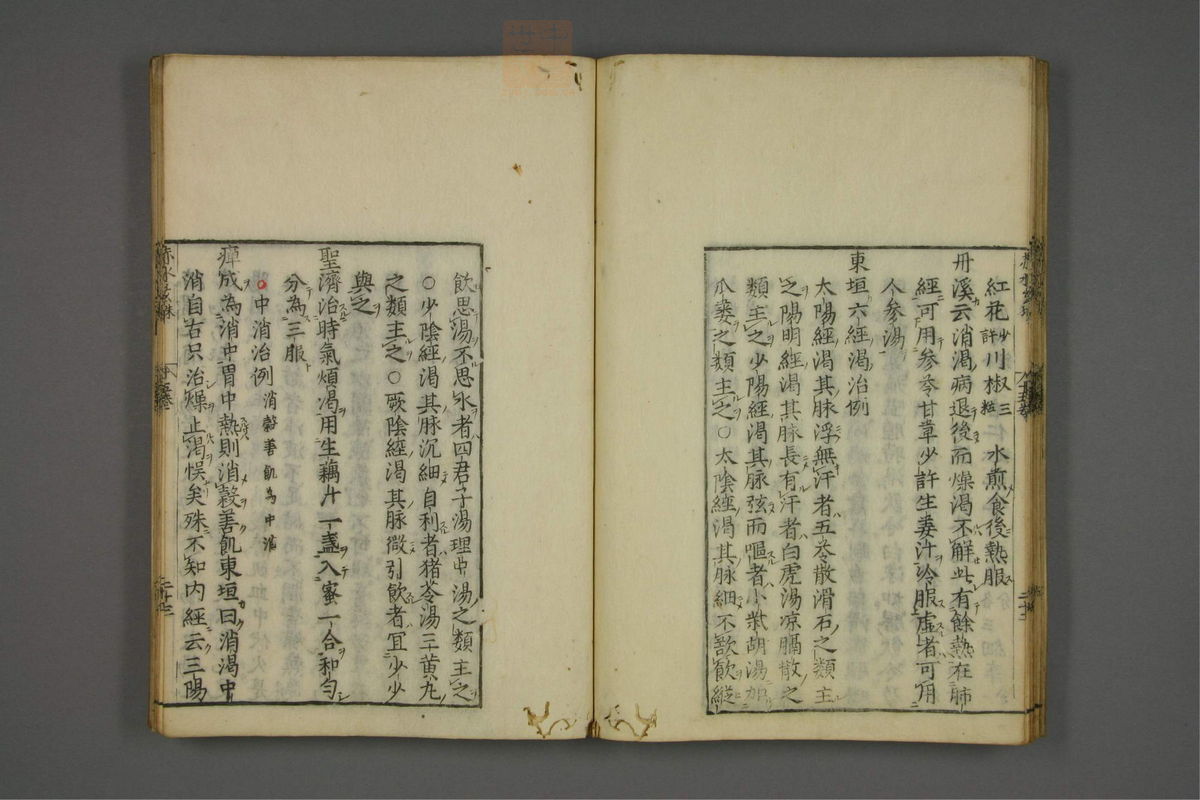 紅花少許川椒三粒水煎食後熱服
丹溪云消渴病退後而燥渴不解此有餘熱在肺
經可用參苓甘草少許生姜汁冷服虛者可用
人參湯
東垣六經渴治例
太陽經渴其脉浮無汗者五苓散滑石之類主
之陽明經渴其脉長有汗者白虎湯凉膈散之
類主之少陽經渴其脉弦而嘔者小柴胡湯加
瓜蔞之類主之○太陰經渴其脉細不欲飲縱
飲思湯不思水者四君子湯理中湯之類主之
○少陰經渴其脉沉細自利者猪苓湯三黃丸
之類主之○厥陰經渴其脉微引飲者宜少少
與之
聖濟治時氣煩渴用生藕汁一盞入蜜一合和勻
分為三服
中消治例消穀善飢為中消
癉成為消中胃中熱則消穀善飢東垣曰消渴中
消自古只治燥止渴悞矣殊不知内經云三陽